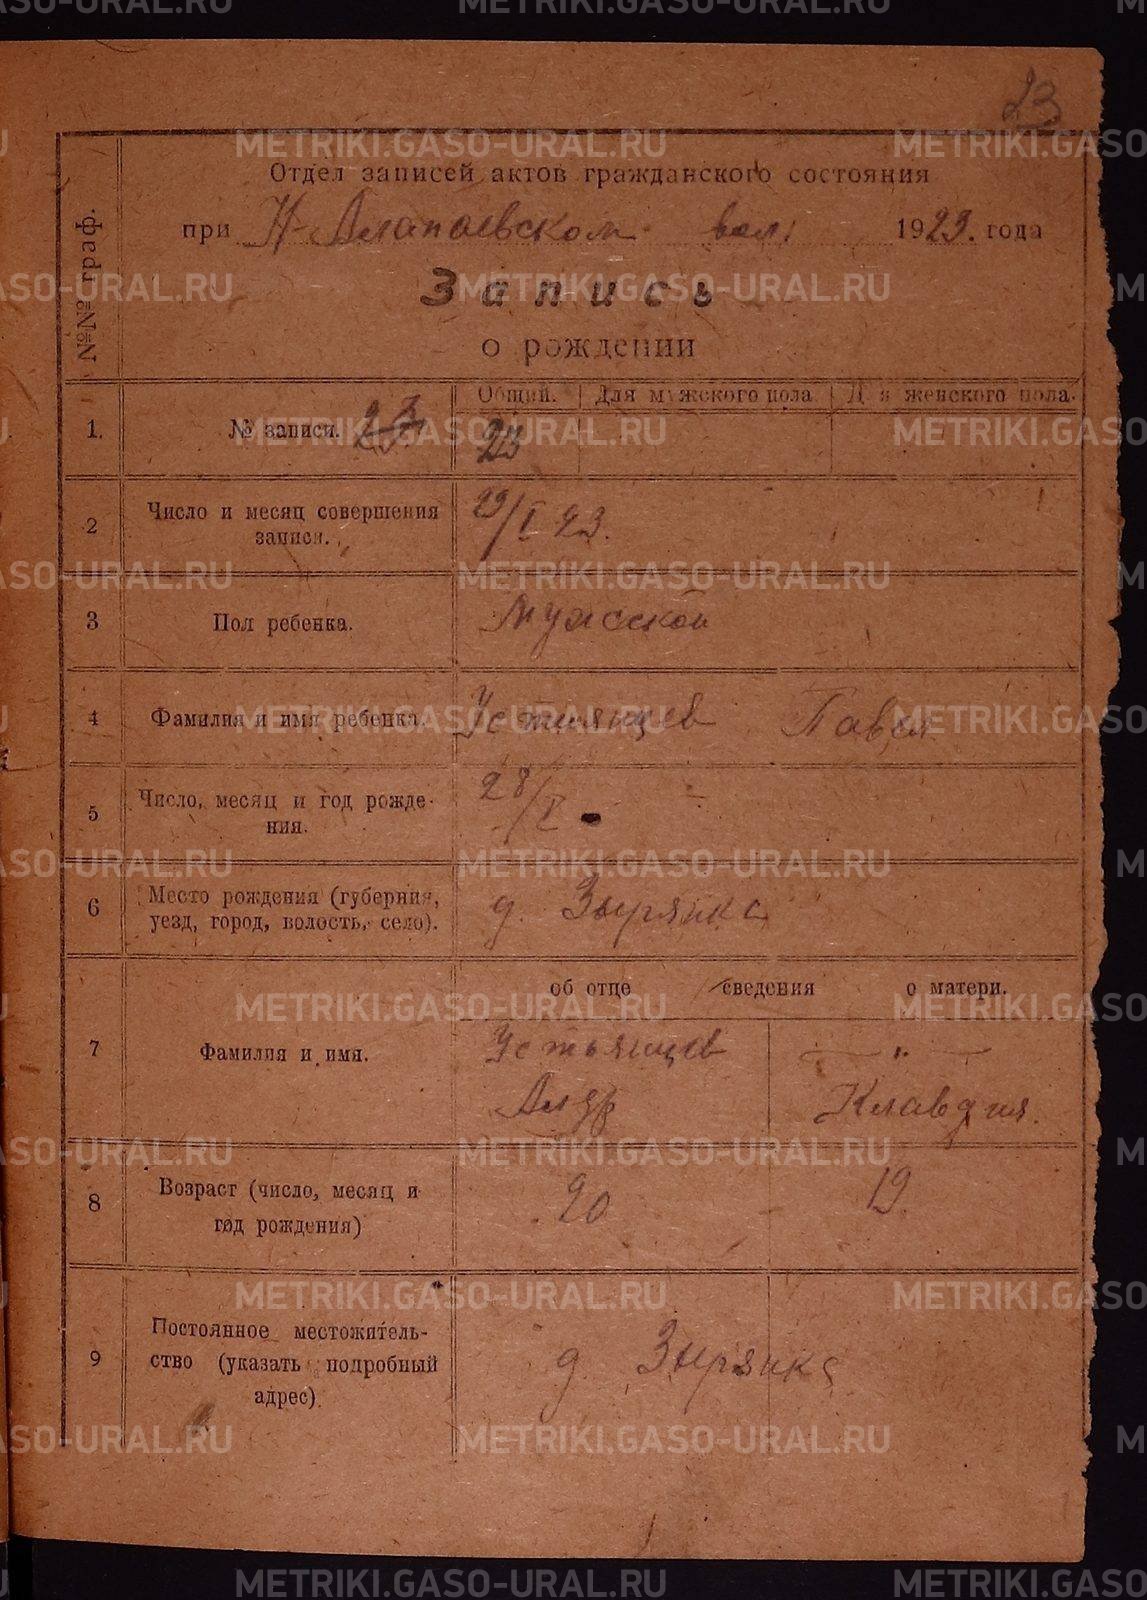 23
Отдел записей актов гражданского состояния
при Н-Алапаевском вол. 1923. года
Запись
о рождении
№№ граф.
Общий. Для мужского пола Для женского пола.
1. № записи. 23 23
2 Число и месяц совершения записи. 29/I 23.
3 Пол ребенка. Мужской
4 Фамилия и имя ребенка. Устьянцев Павел
5 Число, месяц и год рожде-
ния. 28/I
6 Место рождения (губерния,
уезд, город, волость, село). д. Зырянка
об отце сведения о матери.
7 Фамилия и имя. Устьянцев — " —
Алдр Клавдия.
8 Возраст (число, месяц и
год рождения) 20 19.
9 Постоянное местожитель-
ство (указать подробный
адрес). д. Зырянка
METRIKI.GASO-URAL.RU